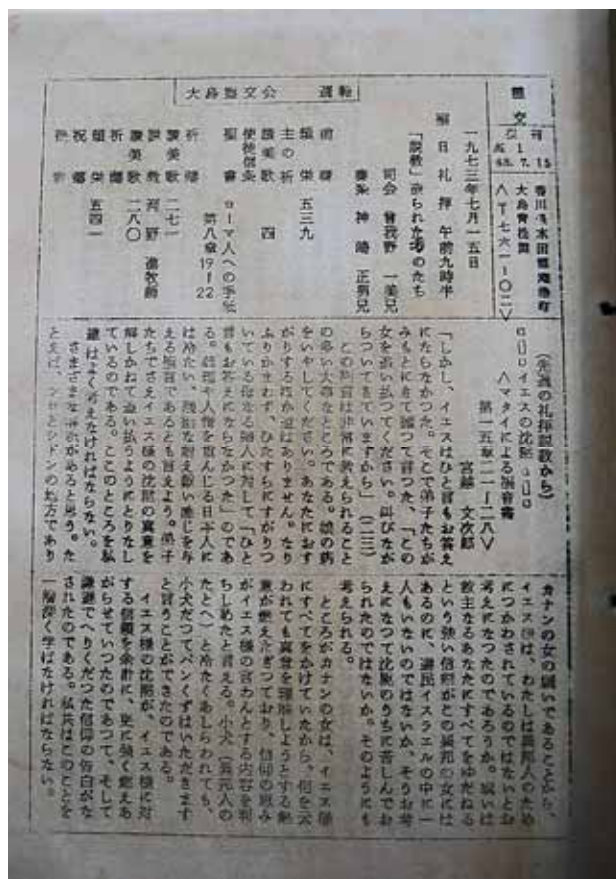 霊交
48. 7. 15
香川県木田郡庵治町
大島青松園
大島霊交会 週報
一九七三年七月一五日
聖日礼拝 午前九時半
司会 曾我野 一美兄
奏楽 神崎 正男兄
前奏
頌栄 五三九
主の祈
讃美歌 四
使徒信条
聖書 ローマ人への手紙
第八章19−22
祈祷
讃美歌 二七一
説教 河野 進牧師
讃美歌 二八〇
祈祷
頌栄 五四一
祝祷
(先週の礼拝説教から)
イエスの沈黙
〈マタイによる福音書
第一五章二一−二八〉
宮越 文次郎
「しかし、イエスはひと言もお答え
にならなかつた。そこで弟子たちが
みもとにきて願つて言つた、「この
女を追い払つてください。叫びなが
らついてきていますから」(二三)
この聖書は非常に教えられること
の多い大事なところである。娘の病
をいやしてください。あなたにおす
がりするほか道はありません。なり
ふりかまわず、ひたすらにすがりつ
いている母なる婦人に対して「ひと
言もお答えにならなかつた」のであ
る。義理や人情を重んじる日本人に
は冷たい、残酷な耐え難い感じを与
える福音であるとも言えよう。弟子
たちでさえイエス様の沈黙の真意を
解しかねて追い払うようにとりなし
ているのである。ここのところを私
達はよく考えなければならない。
さまざまな解釈があると思う。た
とえば、ツロとシドンの地方であり
カナンの女の願いであることから、
イエス様は、わたしは異邦人のため
につかわされているのではないとお
考えになつたのであろうか。或いは
救主なるあなたにすべてをゆだねる
という強い信仰がこの異邦の女には
あるのに、選民イスラエルの中に一
人もいないのではないか、そうお考
えになつて沈黙のうちに苦しんでお
られたのではないか。そのようにも
考えられる。
ところがカナンの女は、イエス様
にすべてをかけていたから、何を云
われても真意を理解しようとする熱
意が燃えたぎつており、信仰の恵み
がイエス様の言わんとする内容を判
らしめたと言える。小犬(異邦人の
たとへ)と冷たくあしらわれても、
小犬だつてパンくずはいただきます
と言うことができたのである。
イエス様の沈黙が、イエス様に対
する信頼を余計に、更に強く燃えあ
がらせていつたのであつて、そして
謙遜でへりくだつた信仰の告白がな
されたのである。私共はこのことを
一層深く学ばなければならない。